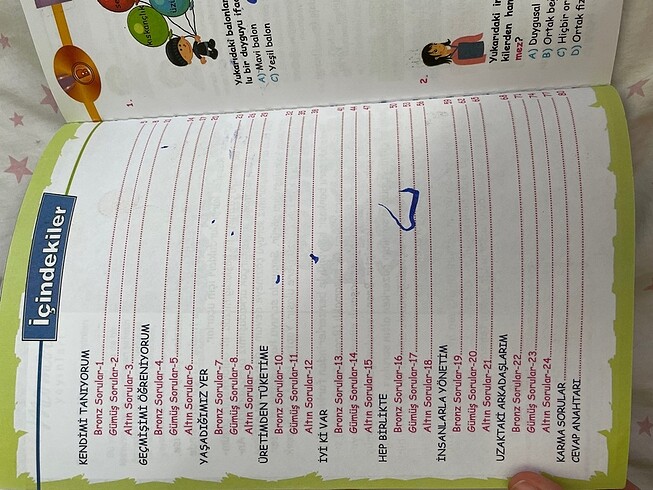 İçindekiler
KENDİMİ TANIYORUM
Bronz Sorular-1
Gümüş Sorular-2
Altın Sorular-3
GEÇMİŞİMİ ÖĞRENİYORUM
Bronz Sorular-4
Gümüş Sorular-5
Altın Sorular-6
YAŞADIĞIMIZ YER
Bronz Sorular-7
Gümüş Sorular-8
Altın Sorular-9
ÜRETİMDEN TÜKETİME
Bronz Sorular-10
Gümüş Sorular-11
Altın Sorular-12
İYİ Kİ VAR
Bronz Sorular-13
Gümüş Sorular-14
Altın Sorular-15
HEP BİRLİKTE
Bronz Sorular-16
Gümüş Sorular-17
Altın Sorular-18
İNSANLARLA YÖNETİM
Bronz Sorular-19
Gümüş Sorular-20
Altın Sorular-21
UZAKTAKİ ARKADAŞLARIM
Bronz Sorular-22
Gümüş Sorular-23
Altın Sorular-24
KARMA SORULAR
CEVAP ANAHTARI
1.
Kıskançlık
Yukarıdaki balonlar
lu bir duyguyu ifa
A) Mavi balon
C) Yeşil balon
2.
Yukarıdaki
kilerden
mez?
A) Duygusal
B) Ortak
C) Hiçbir
D) Ortak